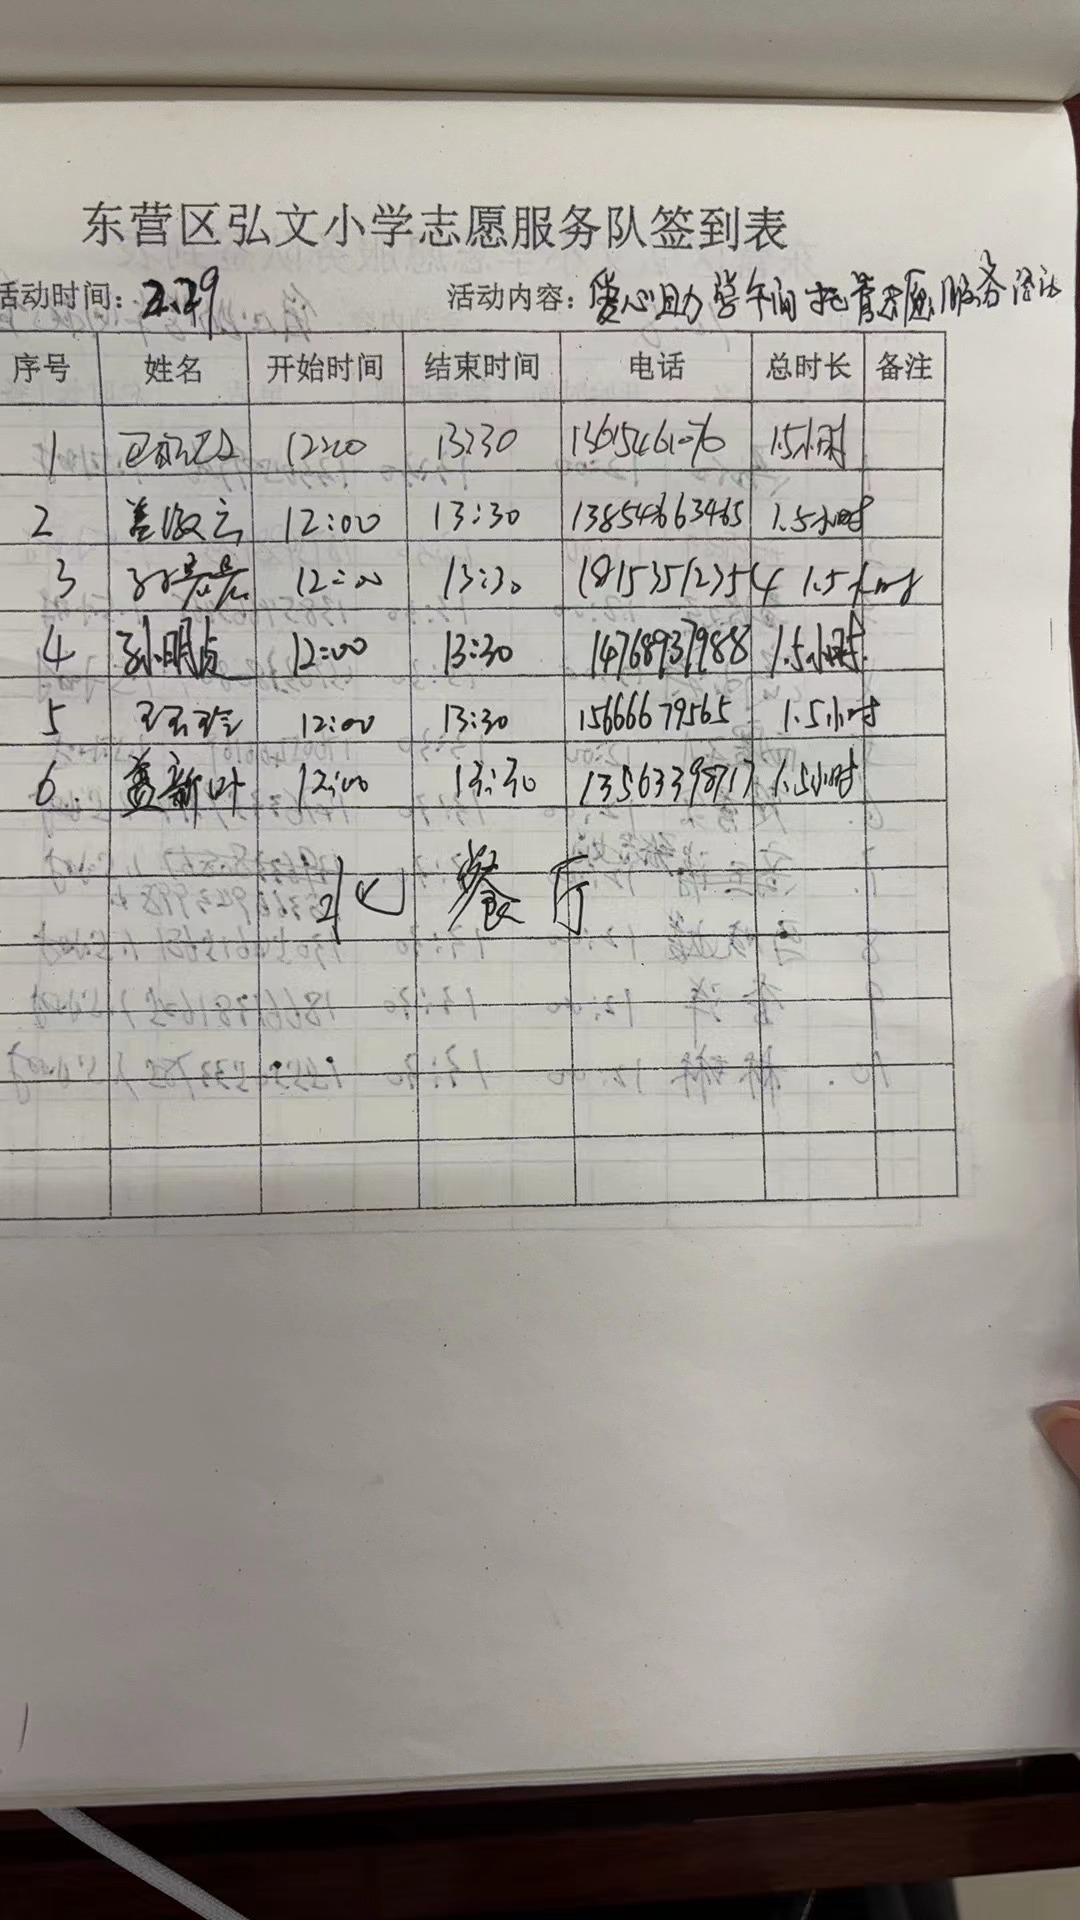 东营区弘文小学志愿服务队签到表
活动时间：2.29 活动内容：爱心助学午间托管志愿服务活动
序号 姓名 开始时间 结束时间 电话 总时长 备注
1 12:00 13:30 1.5小时
2 盖 12:00 13:30 13854663465 1.5小时
3 孙 12:00 13:30 18153512354 1.5小时
4 孙明 12:00 13:30 14768937988 1.5小时
5 王玉玲 12:00 13:30 15666679565 1.5小时
6. 盖新叶 12:00 13:30 13563398717 1.5小时
北 餐厅